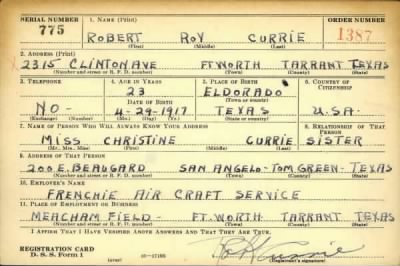 SERIAL NUMBER 1. NAME (Print) ORDER NUMBER
775 ROBERT ROY CURRIE 1387
(First) (Middle) (Last)
2. ADDRESS (Print)
2315 CLINTON AVE FT. WORTH TARRANT TEXAS
(Number and street or R. F. D. number) (Town) (County) (State)
3. TELEPHONE 4. AGE IN YEARS 5. PLACE OF BIRTH 6. COUNTRY OF CITIZENSHIP
23 ELDORADO
DATE OF BIRTH (Town or county)
NO - 4-29-1917 TEXAS U.S.A.
(Exchange) (Number) (Mo.) (Day) (Yr.) (State or country)
7. NAME OF PERSON WHO WILL ALWAYS KNOW YOUR ADDRESS 8. RELATIONSHIP OF THAT PERSON
MISS CHRISTINE CURRIE SISTER
(Mr., Mrs., Miss) (First) (Middle) (Last)
9. ADDRESS OF THAT PERSON
200 E. BEAUGARD SAN ANGELO - TOM GREEN - TEXAS
(Number and street or R. F. D. number) (Town) (County) (State)
10. EMPLOYER'S NAME
FRENCHIE AIR CRAFT SERVICE
11. PLACE OF EMPLOYMENT OR BUSINESS
MEACHAM FIELD - FT. WORTH TARRANT TEXAS
(Number and street or R. F. D. number) (Town) (County) (State)
I AFFIRM THAT I HAVE VERIFIED ABOVE ANSWERS AND THAT THEY ARE TRUE.
REGISTRATION CARD
D. S. S. Form 1 Currie
(Registrant's signature)